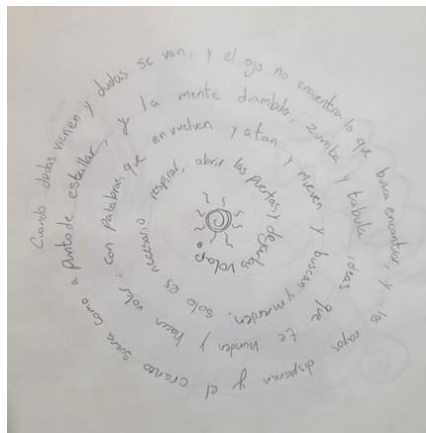 Cuando dudas vienen y dudas se van, y el ojo no encuentra lo que busca encontrar, y los rayos disparan y el craneo suena como a
punto de estallar, y la mente diambula, zumba y tabula ideas que te hunden y hacen volar,
con palabras que envuelven y atan y mueven y buscan y muerden. Solo es necesario
respirar, abrir las puertas y dejarlas volar.